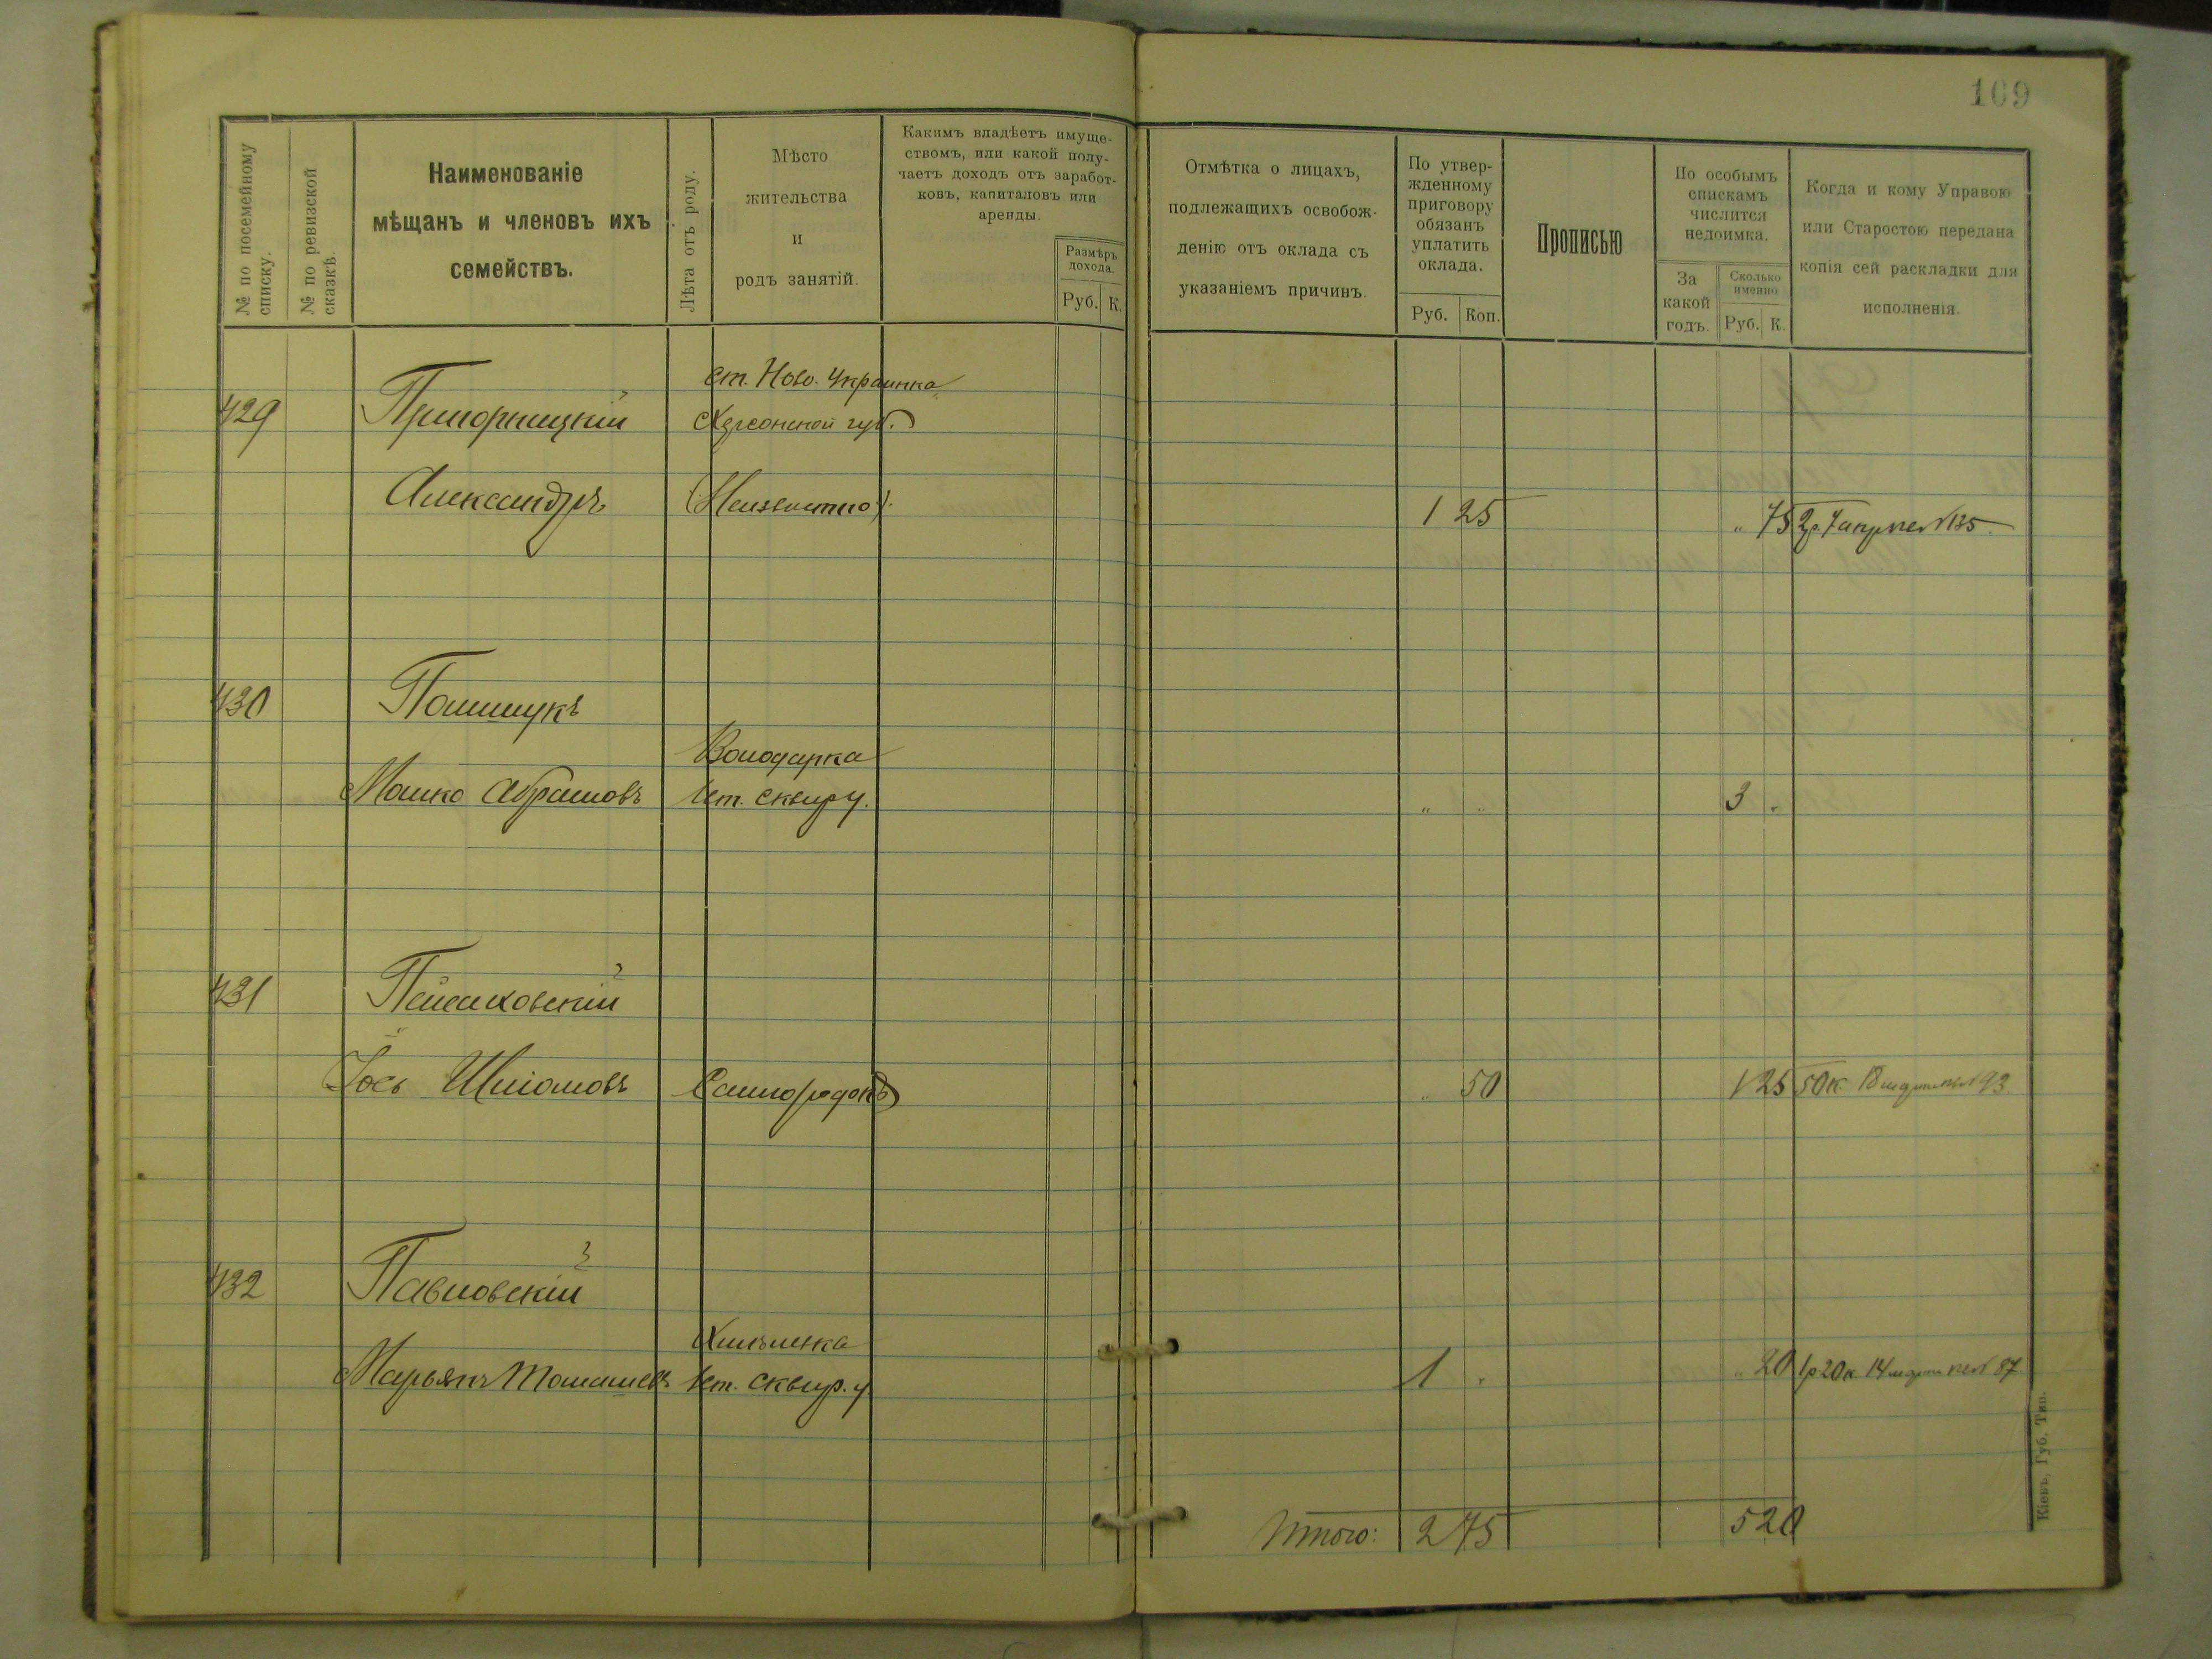 109
№ по посемейному списку.
№ по ревизской сказкѣ.
Наименованіе
мѣщанъ и членовъ ихъ
семействъ.
Лѣта отъ роду.
Мѣсто
жительства
и
родъ занятій.
Какимъ владѣетъ имуще-
ствомъ, или какой полу-
чаетъ доходъ отъ заработ-
ковъ, капиталовъ или
аренды.
Размѣръ
дохода.
Руб. К.
Отмѣтка о лицахъ,
подлежащихъ освобож-
денію отъ оклада съ
указаніемъ причинъ.
По утвер-
жденному
приговору
обязанъ
уплатить
оклада.
Руб. Коп.
Прописью
По особымъ
спискамъ
числится
недоимка.
За
какой
годъ.
Сколько
именно
Руб. К.
Когда и кому Управою
или Старостою передана
копія сей раскладки для
исполненія.
ст. Ново. Украинка
429 Пригорницкій Херсонской губ.
Александръ (Неизвѣстно) 1 25 " 75 2р. 7 апрѣля № 135
430 Полищукъ
Володарка
Мошко Абрамовъ Сквир у. " " 3 "
431 Пейсиховскій
Іось Шліомовъ Самгородокъ " 50 1 25 50 к. 18 марта № 93.
432 Павловскій
Хмѣлевка
Марьянъ Томашевъ Сквир. у. 1 " " 20 1р 20 к. 14 марта № 87
Итого: 2 75 5 20
Кіевъ, Губ. Тип.